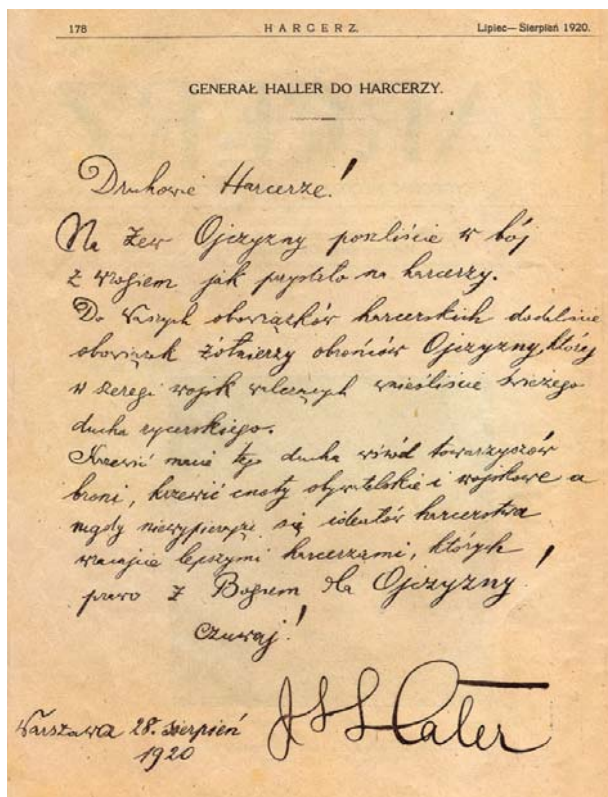 178 HARCERZ. Lipiec—Sierpień 1920.
GENERAŁ HALLER DO HARCERZY.
Druhowie Harcerze!
Na zew Ojczyzny poszliście w bój
z wrogiem jak przystało na harcerzy.
Do Waszych obowiązków harcerskich dodaliście
obowiązek żołnierzy obrońców Ojczyzny, której
w szeregi wojsk walczących wnieśliście świeżego
ducha rycerskiego.
Krzewić macie tego ducha wśród towarzyszów
broni, krzewić cnoty obywatelskie i wojskowe a
nigdy się ideałów harcerstwa
wracajcie lepszymi harcerzami, których
prawo z Bogiem dla Ojczyzny!
Czuwaj!
Warszawa 28. sierpień
1920
Haller